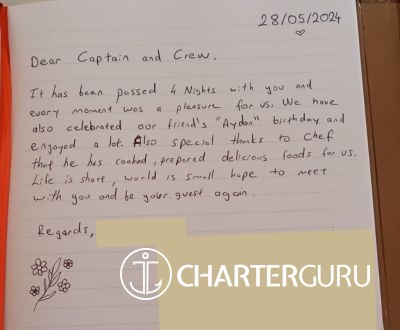 28/05/2024
Dear Captain and Crew,
It has been passed 4 Nights with you and
every moment was a pleasure for us. We have
also celebrated our friend's "Aydan" birthday and
engoyed a lot. Also special thanks to chef
that he has cooked, prepared delicious foods for us.
Life is short, world is small hope to meet
with you and be your guest again.
Regards,
CHARTERGURU